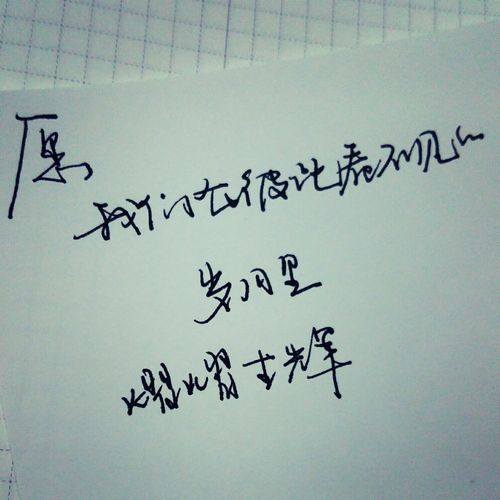 愿
我们在彼此看不见的
岁月里
熠熠生辉